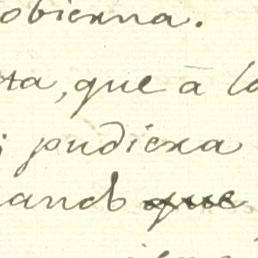 obierna.
ta, que à la
pudiera
ando que